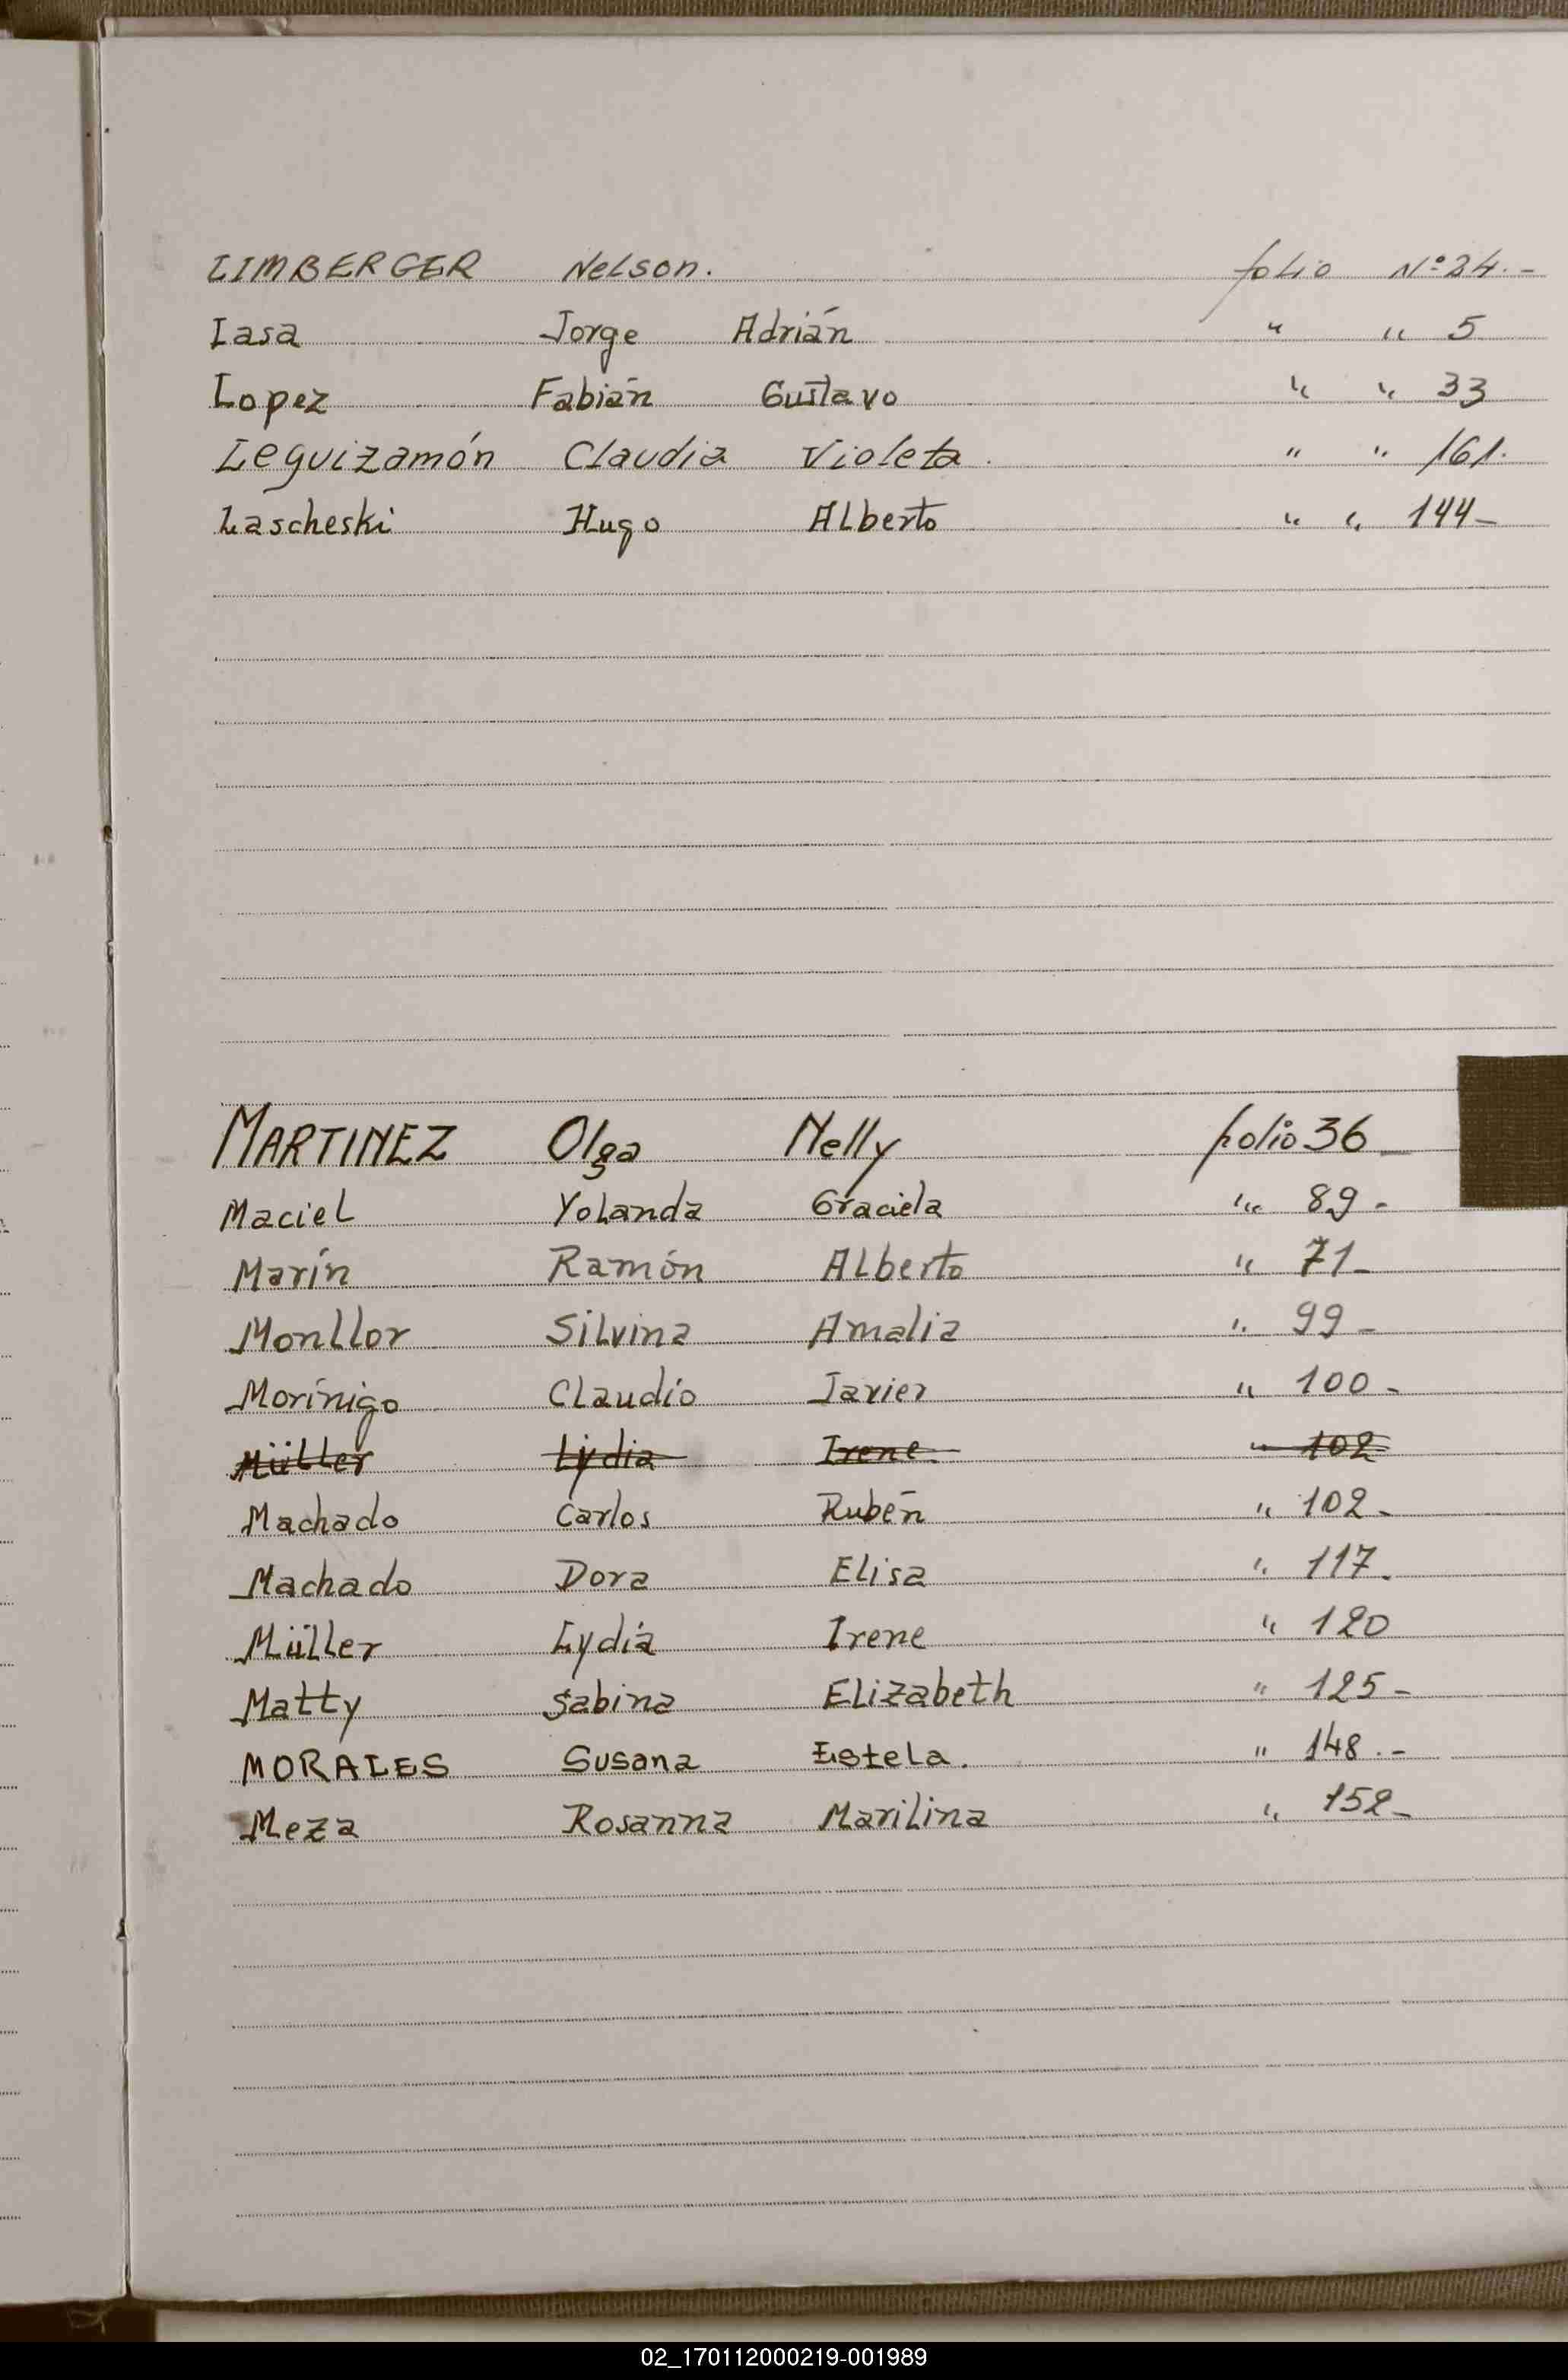 LIMBERGER Nelson. folio Nº 24.-
Lasa Jorge Adrián " " 5
Lopez Fabián Gustavo " " 33
Leguizamón Claudia Violeta. " " 161.
Lascheski Hugo Alberto " " 144-
MARTINEZ Olga Nelly folio 36-
Maciel Yolanda Graciela " 89-
Marín Ramón Alberto " 71-
Monllor Silvina Amalia " 99-
Morínigo Claudio Javier " 100-
Müller Lydia Irene " 102
Machado Carlos Rubén " 102-
Machado Dora Elisa " 117.
Müller Lydia Irene " 120
Matty Sabina Elizabeth " 125-
MORALES Susana Estela. " 148.-
Meza Rosanna Marilina " 152-
02_170112000219-001989